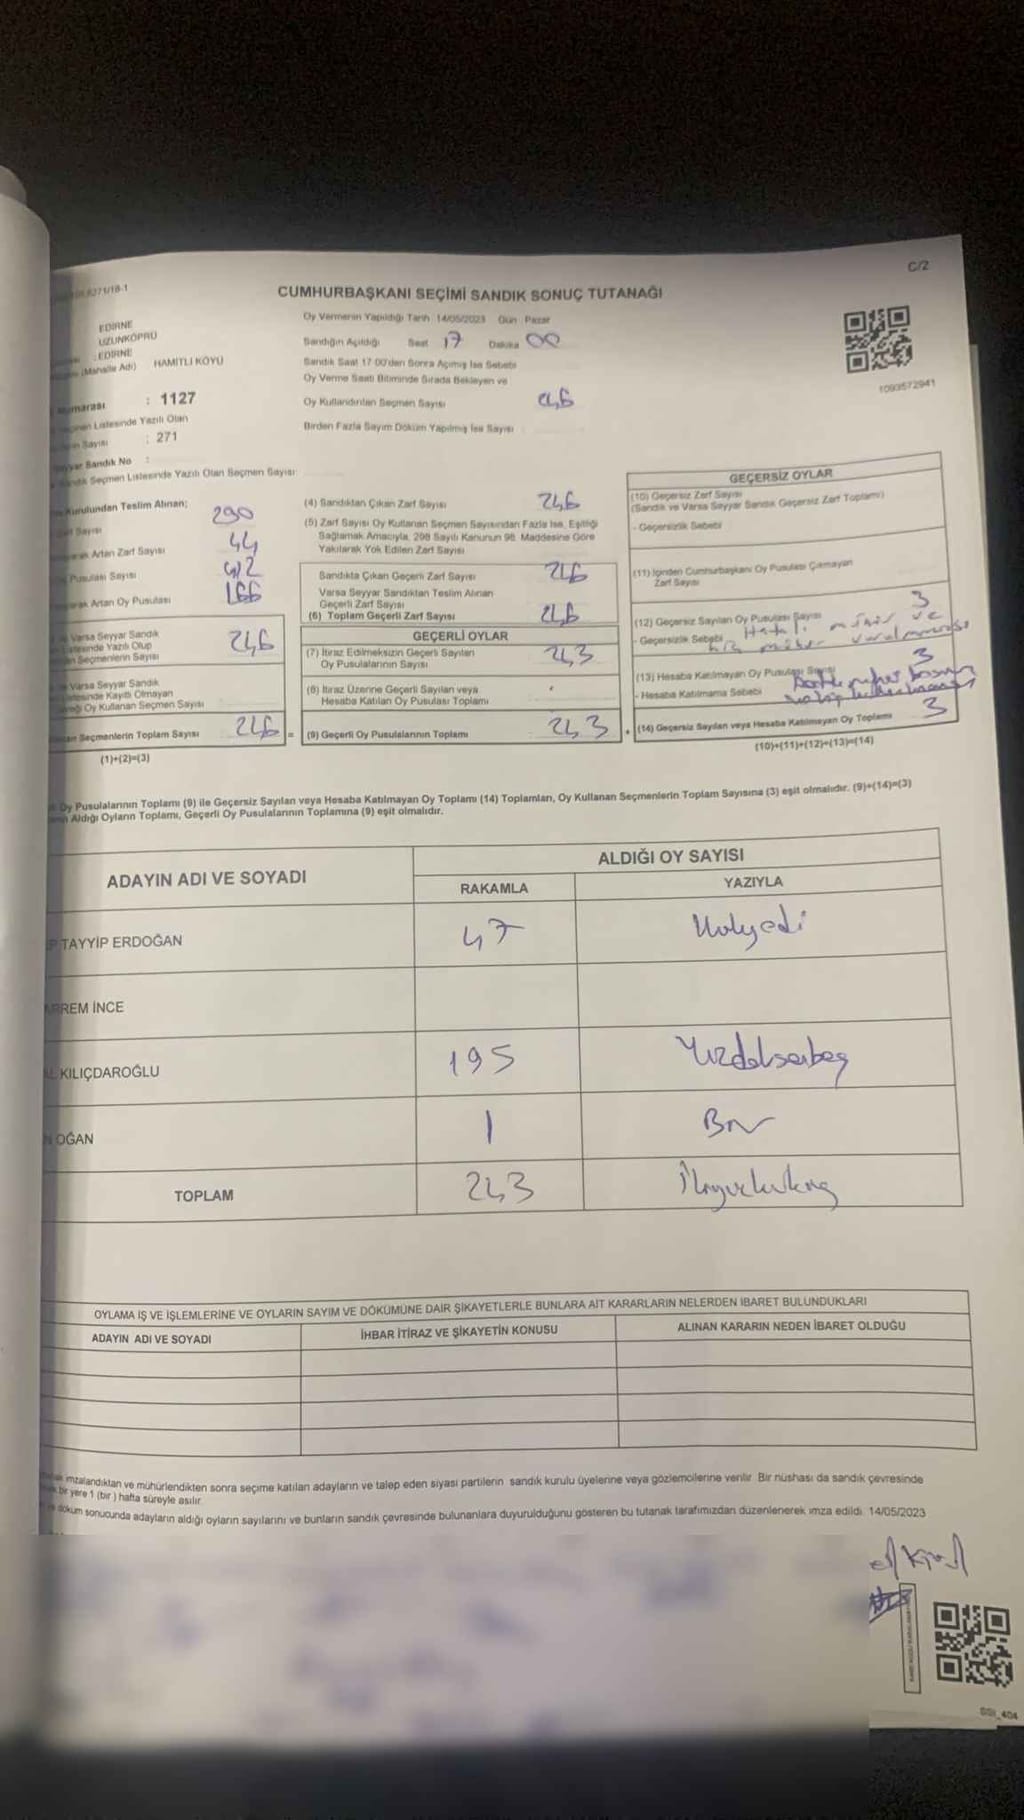 C/2
CUMHURBAŞKANI SEÇİMİ SANDIK SONUÇ TUTANAĞI
EDİRNE
UZUNKÖPRÜ
: EDİRNE
(Mahalle Adı) HAMİTLİ KÖYÜ
: 1127
Listesinde Yazılı Olan
Sayısı : 271
Sandık No :
Seçmen Listesinde Yazılı Olan Seçmen Sayısı:
Oy Vermenin Yapıldığı Tarih: 14/05/2023 Gün : Pazar
Sandığın Açıldığı Saat 17 Dakika 00
Sandık Saat 17:00'den Sonra Açılmış İse Sebebi
Oy Verme Saati Bitiminde Sırada Bekleyen ve
Oy Kullandırılan Seçmen Sayısı 246
Birden Fazla Sayım Döküm Yapılmış İse Sayısı :
1093572941
Kurulundan Teslim Alınan;
Sayısı 290
Artan Zarf Sayısı 44
Pusulası Sayısı 412
Artan Oy Pusulası 166
Varsa Seyyar Sandık
Listesinde Yazılı Olup
Seçmenlerin Sayısı 246
Varsa Seyyar Sandık
Listesinde Kayıtlı Olmayan
Oy Kullanan Seçmen Sayısı
Seçmenlerin Toplam Sayısı 246 =
(1)+(2)=(3)
(4) Sandıktan Çıkan Zarf Sayısı 246
(5) Zarf Sayısı Oy Kullanan Seçmen Sayısından Fazla İse, Eşitliği
Sağlamak Amacıyla, 298 Sayılı Kanunun 98. Maddesine Göre
Yakılarak Yok Edilen Zarf Sayısı
Sandıkta Çıkan Geçerli Zarf Sayısı 246
Varsa Seyyar Sandıktan Teslim Alınan
Geçerli Zarf Sayısı
(6) Toplam Geçerli Zarf Sayısı 246
GEÇERLİ OYLAR
(7) İtiraz Edilmeksizin Geçerli Sayılan
Oy Pusulalarının Sayısı 243
(8) İtiraz Üzerine Geçerli Sayılan veya
Hesaba Katılan Oy Pusulası Toplamı
(9) Geçerli Oy Pusulalarının Toplamı 243 +
GEÇERSİZ OYLAR
(10) Geçersiz Zarf Sayısı
(Sandık ve Varsa Seyyar Sandık Geçersiz Zarf Toplamı)
- Geçersizlik Sebebi
(11) İçinden Cumhurbaşkanı Oy Pusulası Çıkmayan
Zarf Sayısı
(12) Geçersiz Sayılan Oy Pusulası Sayısı 3
- Geçersizlik Sebebi Hatalı mühür ve
(13) Hesaba Katılmayan Oy Pusulası Sayısı 3
- Hesaba Katılmama Sebebi
(14) Geçersiz Sayılan veya Hesaba Katılmayan Oy Toplamı 3
(10)+(11)+(12)+(13)=(14)
Oy Pusulalarının Toplamı (9) ile Geçersiz Sayılan veya Hesaba Katılmayan Oy Toplamı (14) Toplamları, Oy Kullanan Seçmenlerin Toplam Sayısına (3) eşit olmalıdır. (9)+(14)=(3)
Aldığı Oyların Toplamı, Geçerli Oy Pusulalarının Toplamına (9) eşit olmalıdır.
ADAYIN ADI VE SOYADI
ALDIĞI OY SAYISI
RAKAMLA YAZIYLA
TAYYİP ERDOĞAN 47 Kırkyedi
İNCE
KILIÇDAROĞLU 195 Yüzdoksanbeş
OĞAN 1 Bir
TOPLAM 243 İkiyüzkırküç
OYLAMA İŞ VE İŞLEMLERİNE VE OYLARIN SAYIM VE DÖKÜMÜNE DAİR ŞİKAYETLERLE BUNLARA AİT KARARLARIN NELERDEN İBARET BULUNDUKLARI
ADAYIN ADI VE SOYADI İHBAR İTİRAZ VE ŞİKAYETİN KONUSU ALINAN KARARIN NEDEN İBARET OLDUĞU
imzalandıktan ve mühürlendikten sonra seçime katılan adayların ve talep eden siyasi partilerin sandık kurulu üyelerine veya gözlemcilerine verilir. Bir nüshası da sandık çevresinde
bir yere 1 (bir) hafta süreyle asılır.
döküm sonucunda adayların aldığı oyların sayılarını ve bunların sandık çevresinde bulunanlara duyurulduğunu gösteren bu tutanak tarafımızdan düzenlenerek imza edildi. 14/05/2023